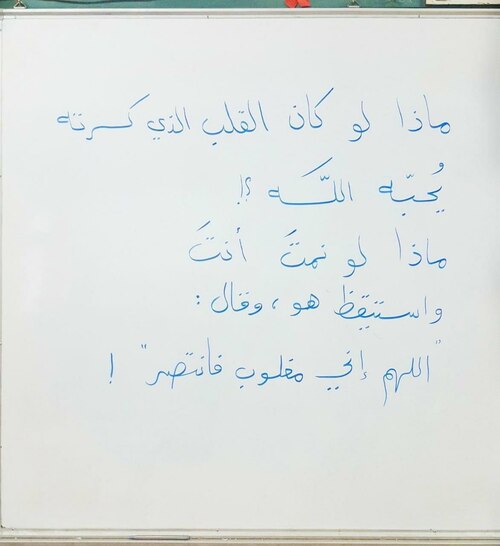 ماذا لو كان القلب الذي كسرته
يُحبّه اللّه ؟!
ماذا لو نمتَ أنتَ
واستيقظ هو ، وقال :
"اللهم إني مغلوب فانتصر" !